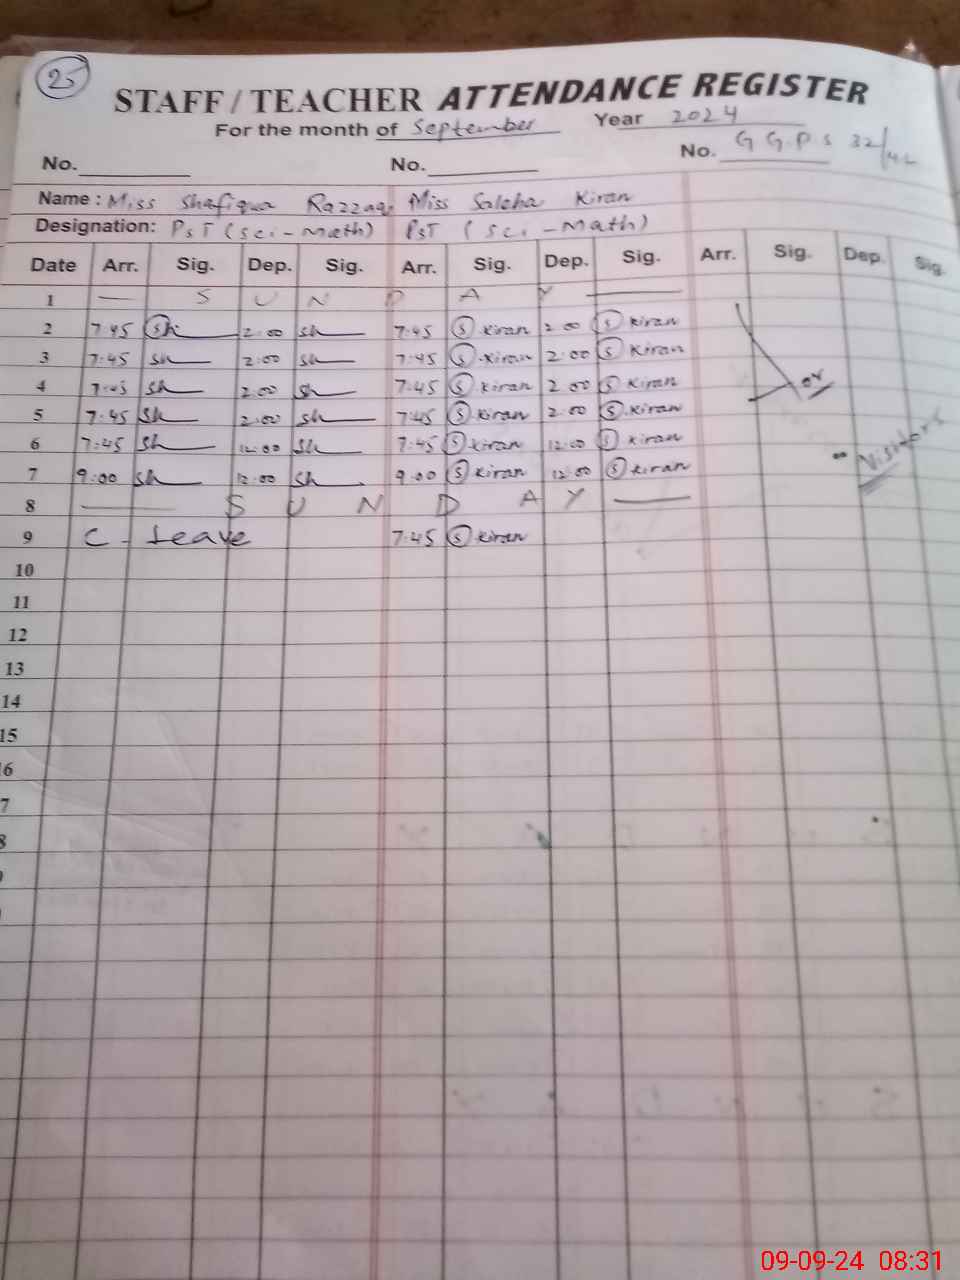 25
STAFF / TEACHER ATTENDANCE REGISTER
For the month of September Year 2024
No. No. No. G G.P.S 32/4L
Name : Miss Shafiqua Razzaq Miss Saleha Kiran
Designation: PST (Sci-Math) PST (Sci-Math)
Date Arr. Sig. Dep. Sig. Arr. Sig. Dep. Sig. Arr. Sig. Dep. Sig.
1 — S U N D A Y —
2 7:45 Sh 2:00 Sh 7:45 S.kiran 2:00 S kiran
3 7:45 Sh 2:00 Sh 7:45 S.kiran 2:00 S kiran
4 7:45 Sh 2:00 Sh 7:45 S.kiran 2:00 S.kiran
5 7:45 Sh 2:00 Sh 7:45 S.kiran 2:00 S.kiran
6 7:45 Sh 12:00 Sh 7:45 S.kiran 12:00 S kiran
7 9:00 Sh 12:00 Sh 9:00 S kiran 12:00 S.kiran
Visitors
8 — S U N D A Y —
9 C - Leave 7:45 S.kiran
10
11
12
13
14
15
6
7
8
09-09-24 08:31